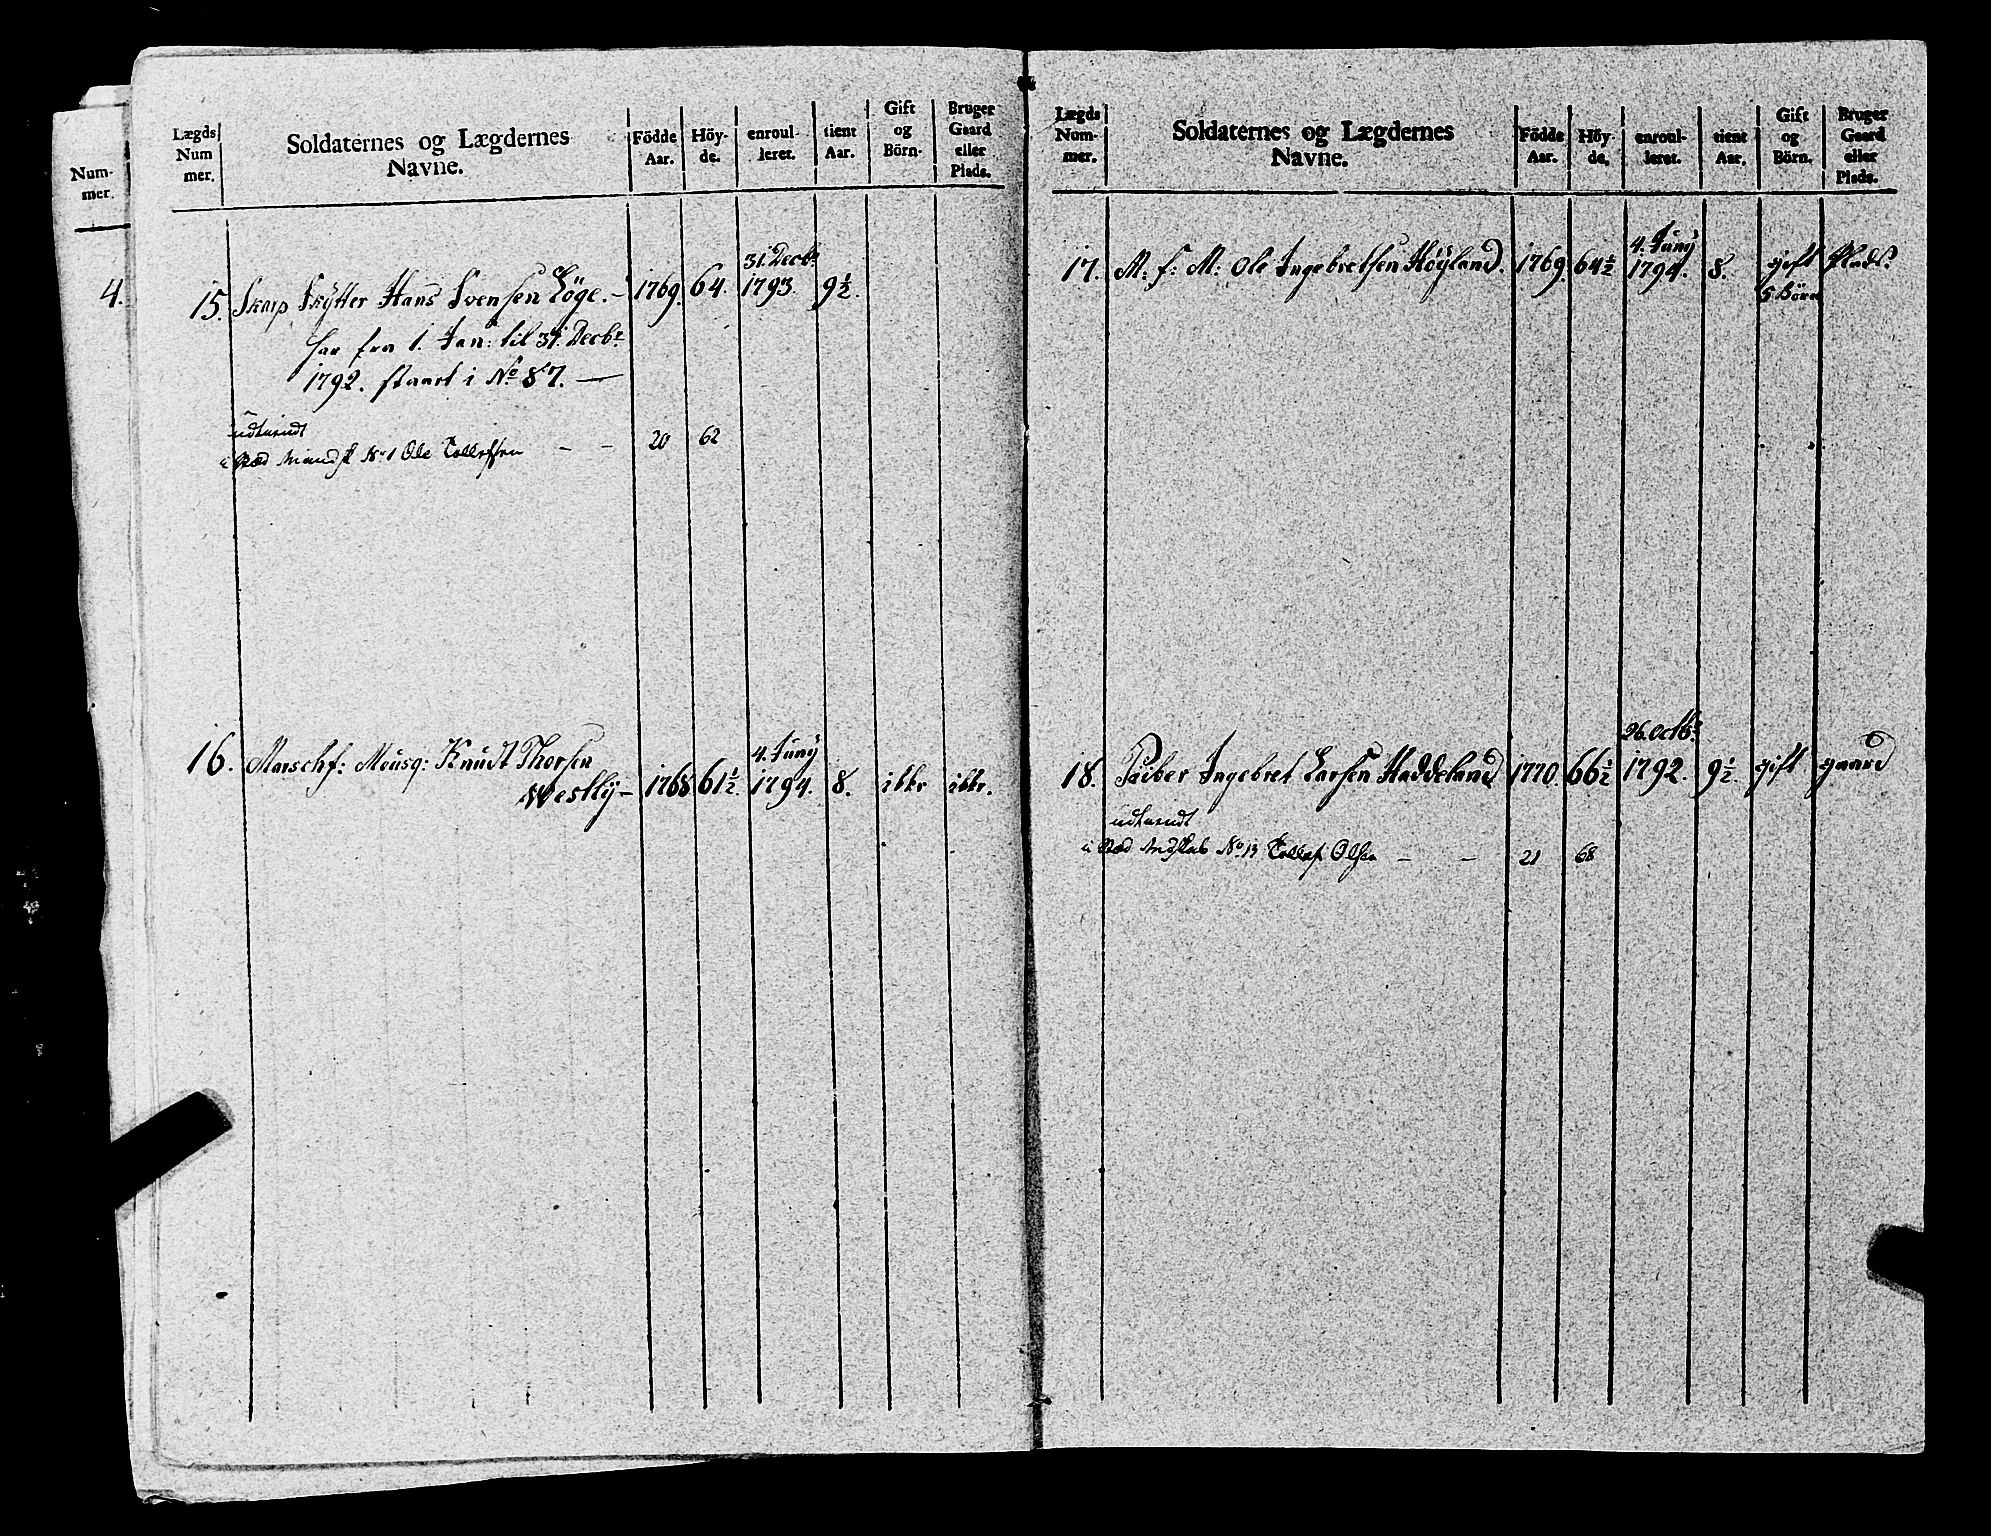 Num-
mer.
4.
Lægds
Num
mer.
Soldaternes og Lægdernes
Navne.
Födde
Aar.
Höy-
de.
enroul-
leret.
tient
Aar.
Gift
og
Börn.
Bruger
Gaard
eller
Plads.
31. Decbr
15. Skarp Skytter Hans Svensen Löge. – 1769. 64. 1793. 9½.
har fra 1. Jan: til 31. Decbr
1792. staaet i No 87. —
udtiendt
i Sted Mandsk No 1 Ole Tollefsen – – 20 62
4. Juny
16. Marschf: Mousq: Knudt Thorsen
Westly – 1768 61½. 1794. 8. ikke ikke.
Lægds
Num-
mer.
Soldaternes og Lægdernes
Navne.
Födde
Aar.
Höy-
de.
enroul-
leret.
tient
Aar.
Gift
og
Börn.
Bruger
Gaard
eller
Plads.
4. Juny
17. M: f: M: Ole Ingebretsen Höyland. 1769. 64½ 1794. 8. gift Plads.
5 Börn
26. Octbr
18. Piber Ingebret Larsen Haddeland 1770. 66½ 1792. 9½. gift gaard
udtiendt
i Sted No 13 Tollef Olsen – – 21 68